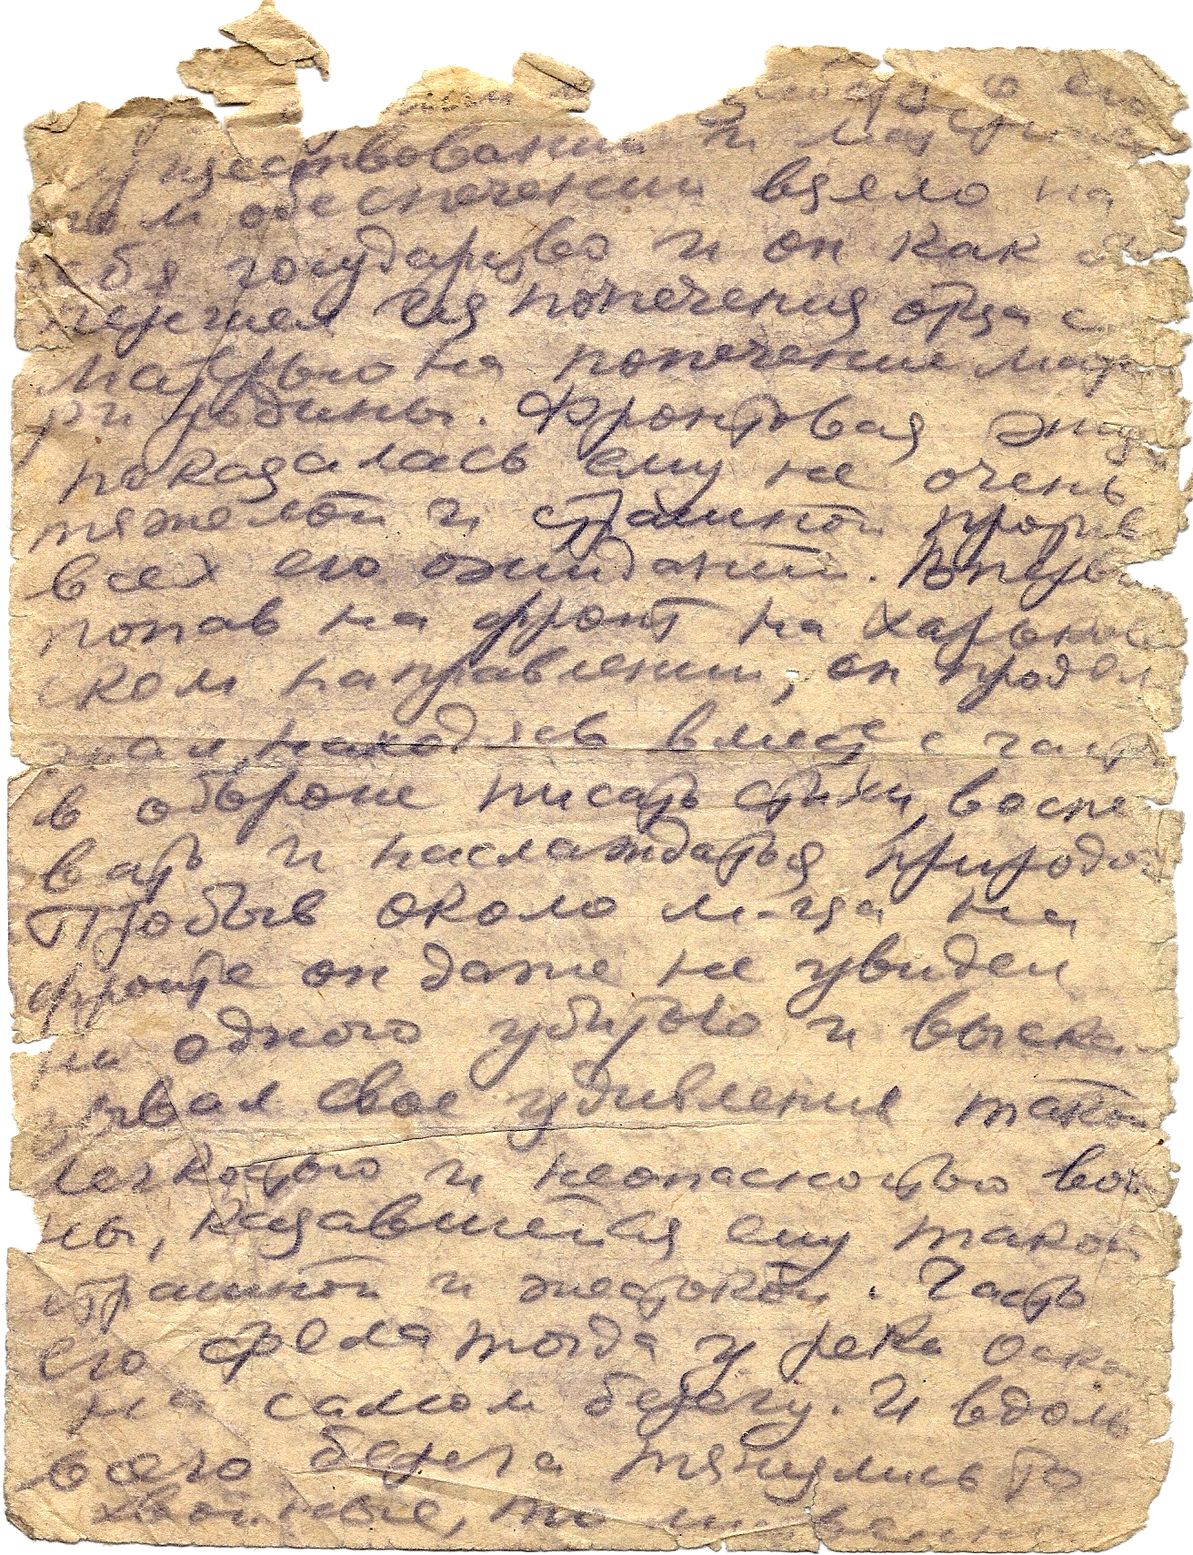 о его
существовании и мат
ом обеспечении взяло на
себя государство и он как бы
перешел из попечения отца с
матерью на попечение мате
ри родины. Фронтовая жизнь
показалась ему не очень
тяжелой и страшной против
всех его ожиданий. Впервые
попав на фронт на Харьков
ском направлении, он продол
жал находясь вместе с часть
в обороне писать стихи, воспе
вать и наслаждаться природой
Пробыв около м-ца на
фронте он даже не увидел
ни одного убитого и выска
зывал свое удивления такой
легкостью и неопасностью вой
ны, казавшейся ему такой
страшной и жестокой. Часть
его стояла тогда у реки Оскол
на самом берегу. И вдоль
всего берега тянулись то
хвойные, то